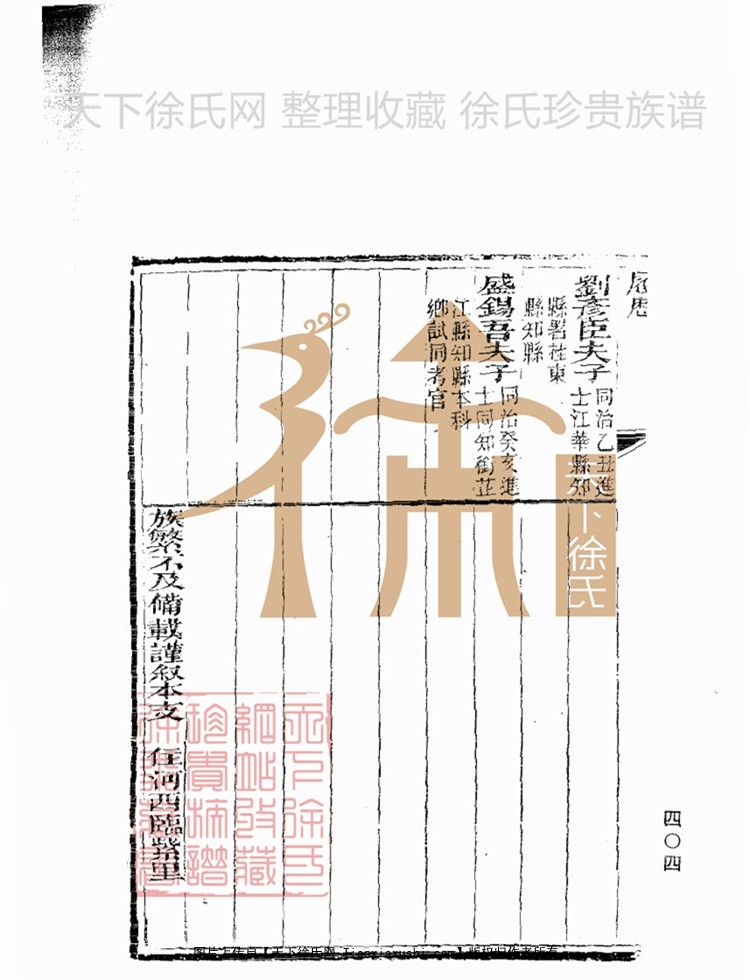 天下徐氏网 整理收藏 徐氏珍贵族谱
劉彥臣夫子
同治乙丑進
士江華縣知
縣署桂東
縣知縣
盛錫吾夫子
同治癸亥進
士同知銜芷
江縣知縣本科
鄉試同考官
族繁不及備載謹叙本支 住河西臨紫里
天下徐氏
天下徐氏
網站收藏
珍貴族譜
四〇四